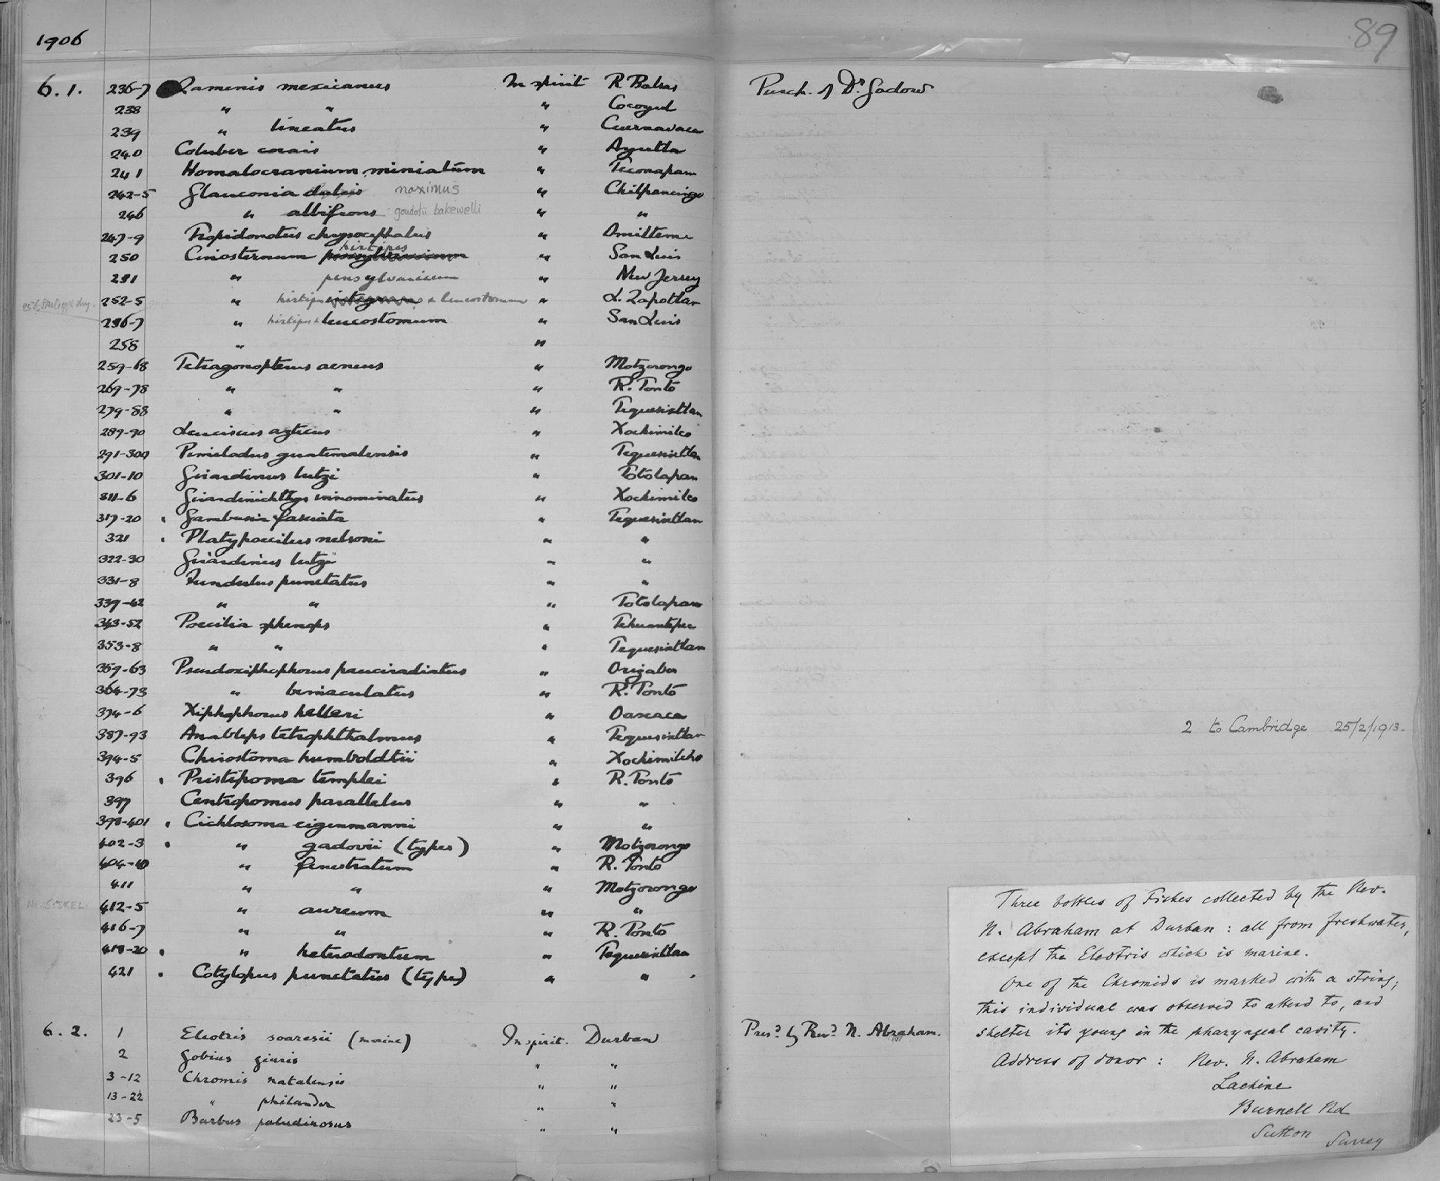 1906
89
6.1. 236-7 Zamenis mexicanus In spirit R. Balsas Purch. of Dr. Gadow
238 " " " Cocoyul
239 " lineatus " Cuernavaca
240 Coluber corais " Ayutla
241 Homalocranium miniatum " Teconapam
242-5 Glauconia dulcis maximus " Chilpancingo
246 " albifrons goudotii bakewelli " "
247-9 Tropidonotus chrysocephalus " Omilteme
250 Cinosternum pensylvanicum hirtipes " San Luis
251 " pensylvanicum " New Jersey
252-5 " hirtipes integrum & leucostomum " L. Zapotlan
256-7 " hirtipes & leucostomum " San Luis
258 " "
259-68 Tetragonopterus aeneus " Motzorongo
269-78 " " " R. Tonto
279-88 " " " Tequesixtlan
289-90 Leuciscus aztecus " Xochimilco
291-300 Pimelodus guatemalensis " Tequesixtlan
301-10 Girardinus lutzi " Totolapan
311-6 Girardinichthys innominatus " Xochimilco
317-20 Gambusia fasciata " Tequesixtlan
321 Platypoecilus nelsoni " "
322-30 Girardinus lutzi " "
331-8 Fundulus punctatus " "
339-42 " " " Totolapan
343-52 Poecilia sphenops " Tehuantepec
353-8 " " " Tequesixtlan
359-63 Pseudoxiphophorus pauciradiatus " Orizaba
364-73 " bimaculatus " R. Tonto
374-6 Xiphophorus helleri " Oaxaca
387-93 Anableps tetrophthalmus " Tequesixtlan 2 to Cambridge 25/2/1913.
394-5 Chirostoma humboldtii " Xochimilcho
396 Pristipoma templei " R. Tonto
397 Centropomus parallelus " "
398-401 Cichlosoma eigenmanni " "
402-3 " gadovii (types) " Motzorongo
404-10 " fenestratum " R. Tonto
411 " " " Motzorongo
412-5 " aureum " "
416-7 " " " R. Tonto
418-20 " heterodontum " Tequesixtlan
421 Cotylopus punctatus (type) " "
6.2. 1 Eleotris soaresii (marine) In spirit. Durban Presd. by Revd. N. Abraham.
2 Gobius giuris " "
3-12 Chromis natalensis " "
13-22 " philander " "
23-5 Barbus paludinosus " "
Three bottles of Fishes collected by the Rev.
N. Abraham at Durban : all from freshwater,
except the Eleotris which is marine.
One of the Chromids is marked with a string;
this individual was observed to attend to, and
shelter its young in the pharyngeal cavity.
Address of donor : Rev. N. Abraham
Lachine
Burnell Rd
Sutton Surrey